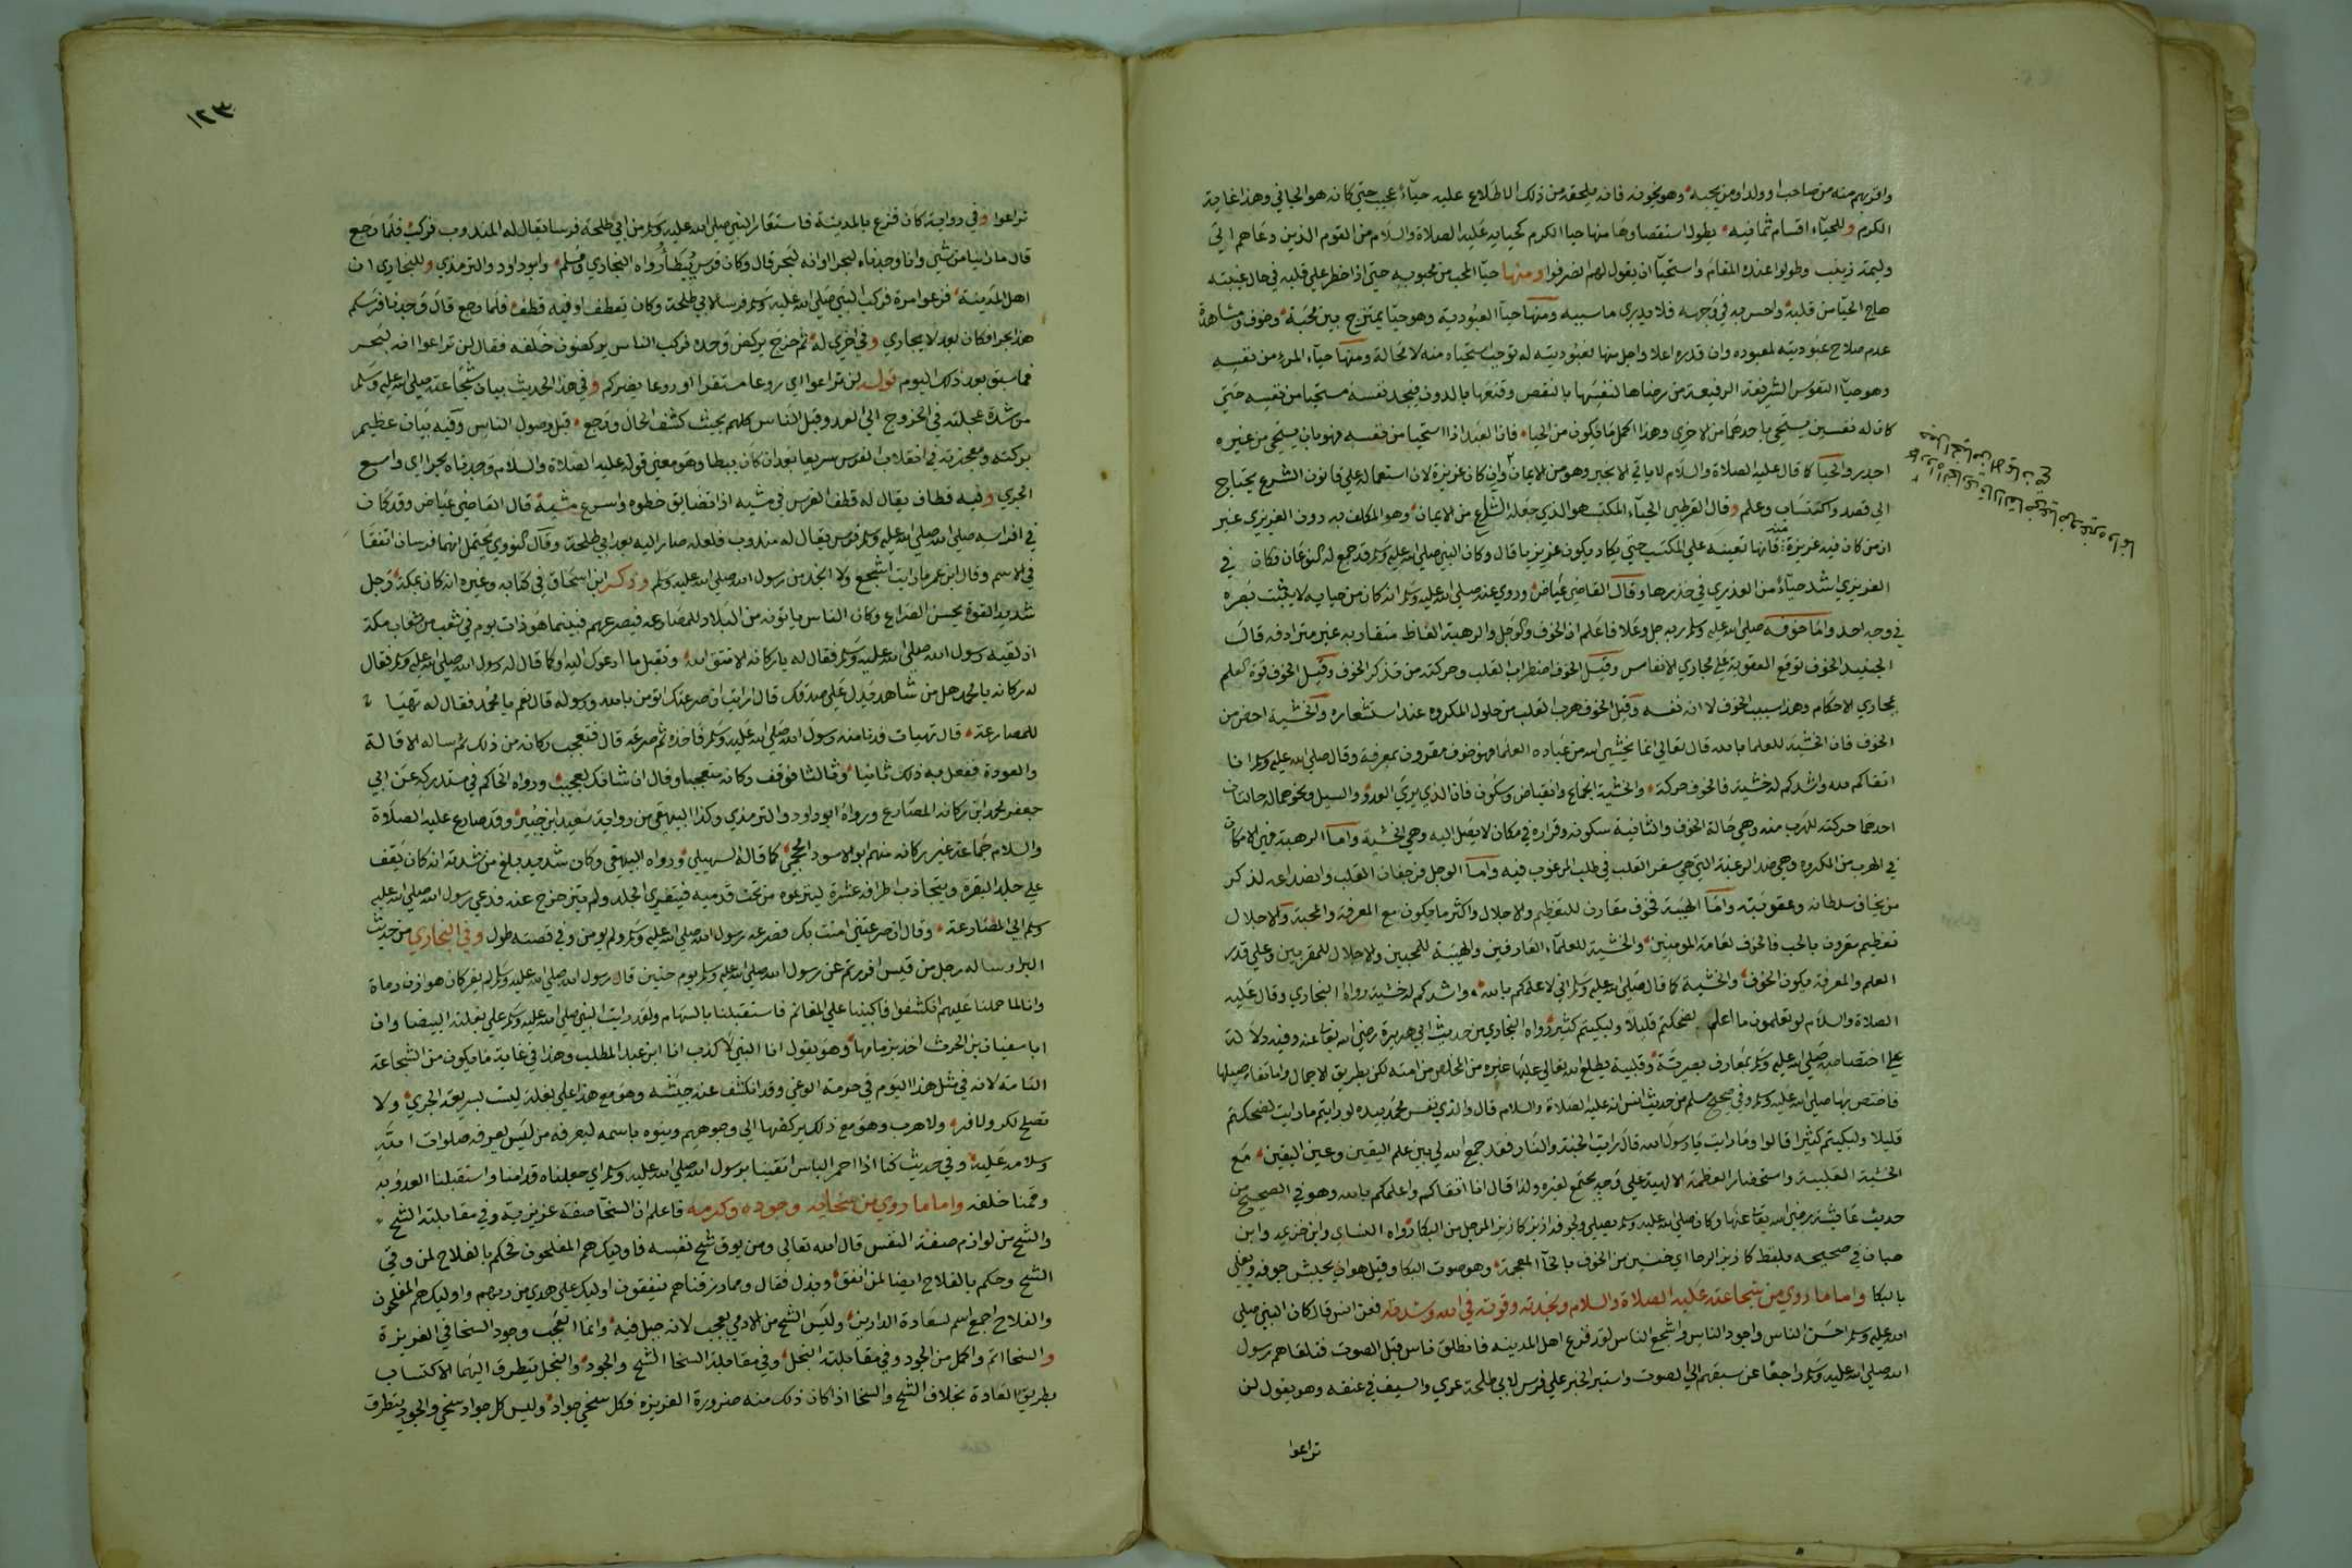 واقربهم منه من صاحب او ولد او من يحبه وهو يخونه فانه يلحقه من ذلك الاطلاع عليه حياء عجيب حتي كانه هو الجاني وهذا غاية
الكرم وللحياء اقسام ثمانيه يطول استقصاوها منها حيا الكرم كحيايه عليه الصلاة والسلام من القوم الذين دعاهم الي
وليمة زينب وطولوا عنده المقام واستحيا ان يقول لهم انصرفوا ومنها حيا المحب من محبوبه حتي اذا خطر علي قلبه في حال غيبته
هاج الحيا من قلبه واحس به في وجهه فلا يدري ما سببه ومنها حيا العبودية وهو حيا يمتزج بين محبة وخوف ومشاهدة
عدم صلاح عبوديته لمعبوده وان قدره اعلا واجل منها فعبوديته له توجب استحياه منه لا محالة ومنها حياء المرء من نفسه
وهو حيا النفوس الشريفة الرفيعة من رضاها لنفسها بالنقص وقنعها بالدون فيجد نفسه مستحيا من نفسه حتي
كان له نفسين يستحي باحدهما من الاخري وهذا اكمل ما يكون من الحيا فان العبد اذا استحيا من نفسه فهو بان يستحي من غيره
اجدر والحيا كما قال عليه الصلاة والسلام لا ياتي الا بخير وهو من الايمان وان كان غريزة لان استعماله علي قانون الشرع يحتاج
الي قصد واكتساب وعلم وقال القرطبي الحياء المكتسب هو الذي جعله الشارع من الايمان وهو المكلف به دون الغريزي غير
ان من كان فيه غريزة منه فانها تعينه علي المكتسب حتي يكاد يكون غريزيا قال وكان النبي صلي الله عليه وسلم قد جمع له النوعان فكان في
الغريزي اشد حياء من العذري في خدرها وقال القاضي عياض وروي عنه صلي الله عليه وسلم انه كان من حيايه لا يثبت بصره
في وجه احد واما خوفه صلي الله عليه وسلم ربه جل وعلا فاعلم ان الخوف والوجل والرهبة الفاظ متقاربه غير مترادفه قال
الجنيد الخوف توقع العقوبة علي مجاري الانفاس وقيل الخوف اضطراب القلب وحركته من تذكر الخوف وقيل الخوف قوة العلم
بمجاري الاحكام وهذا سبب الخوف لا انه نفسه وقيل الخوف هرب القلب من حلول المكروه عند استشعاره والخشية اخص من
الخوف فان الخشية للعلما بالله قال تعالي انما يخشي الله من عباده العلما فهو خوف مقرون بمعرفة وقال صلي الله عليه وسلم انا
اتقاكم لله واشدكم له خشية فالخوف حركة والخشية انجماع وانقباض وسكون فان الذي يري العدو والسيل ونحو هما له حالتان
احدهما حركته للهرب منه وهي حالة الخوف والثانية سكونه وقراره في مكان لا يصل اليه وهي الخشية واما الرهبة فهي الامكان
في الهرب من المكروه وهي ضد الرغبة التي هي سفر القلب في طلب المرغوب فيه واما الوجل فرجفان القلب وانصداعه لذكر
من يخاف سلطانه وعقوبته واما الهيبة فخوف مقارن للتعظيم والاجلال واكثر ما يكون مع المعرفة والمحبة والاجلال
تعظيم مقرون بالحب فالخوف لعامة المومنين والخشية للعلماء العارفين والهيبة للمحبين والاجلال للمقربين وعلي قدر
العلم والمعرفة يكون الخوف والخشية كما قال صلي الله عليه وسلم اني لاعلمكم بالله واشدكم له خشية رواه البخاري وقال عليه
الصلاة والسلام لو تعلمون ما اعلم لضحكتم قليلا ولبكيتم كثيرا رواه البخاري من حديث ابي هريرة رضي الله تعا عنه وفيه دلالة
علي اختصاصه صلي الله عليه وسلم بمعارف بصرية وقلبية يطلع الله تعالي عليها غيره من المخلص من امته لكن بطريق الاجمال واما تفاصيلها
فاختص بها صلي الله عليه وسلم وفي صحيح مسلم من حديث انس انه عليه الصلاة والسلام قال والذي نفس محمد بيده لو رايتم ما رايت لضحكتم
قليلا ولبكيتم كثيرا قالوا وما رايت يا رسول الله قال رايت الجنة والنار فقد جمع الله لي بين علم اليقين وعين اليقين مع
الخشية القلبية واستحضار العظمة الالهية علي وجه يجتمع لغيره ولذا قال انا اتقاكم واعلمكم بالله وهو في الصحيح من
حديث عايشة رضي الله تعا عنها وكان صلي الله عليه وسلم يصلي ولجوفه ازيز كازيز المرجل من البكا رواه النساي وابن خزيمه وابن
حبان في صحيحه بلفظ كازيز الرحا اي خنين من الخوف بالخا المعجمة وهو صوت البكا وقيل هو ان يجيش جوفه ويغلي
بالبكا واما ما روي من شجاعته عليه الصلاة والسلام ونجدته وقوته في الله وشدته فعن انس قال كان النبي صلي
الله عليه وسلم احسن الناس واجود الناس واشجع الناس لقد فزع اهل المدينه فانطلق ناس قبل الصوت فتلقاهم رسول
الله صلي الله عليه وسلم راجعا عن سبقهم الي الصوت واستبر الخبر علي فرس لابي طلحة عري والسيف في عنقه وهو يقول لن
تراعوا
١٢٣
تراعوا وفي رواية كان فزع بالمدينة فاستعار النبي صلي الله عليه وسلم من ابي طلحة فرسا يقال له المندوب فركب فلما رجع
قال ما راينا من شي وانا وجدناه لبحرا او انه لبحر قال وكان فرس يبطأ رواه البخاري ومسلم وابو داود والترمذي وللبخاري ان
اهل المدينة فزعوا مرة فركب النبي صلي الله عليه وسلم فرسا لابي طلحة وكان يقطف او فيه قطف فلما رجع قال وجدنا فرسكم
هذا بحرا فكان بعد لا يجاري وفي اخري له ثم خرج يركض وحده فركب الناس يركضون خلفه فقال لن تراعوا انه لبحر
فما سبق بعد ذلك اليوم قوله لن تراعوا اي روعا مستقرا او روعا يضركم وفي هذا الحديث بيان شجاعته صلي الله عليه وسلم
من شدة عجلته في الخروج الي العدو قبل الناس كلهم بحيث كشف الحال ورجع قبل وصول الناس وفيه بيان عظيم
بركته ومعجزته في انقلاب الفرس سريعا بعد ان كان يبطا وهو معني قوله عليه الصلاة والسلام وجدناه بحرا اي واسع
الجري وفيه قطاف يقال له قطف الفرس في مشيه اذا تضايق خطوه واسرع مشيه قال القاضي عياض وقد كان
في افراسه صلي الله عليه وسلم فرس يقال له مندوب فلعله صار اليه بعد ابي طلحة وقال النووي يحتمل انهما فرسان اتفقا
في الاسم وقال ابن عمر ما رايت اشجع ولا انجد من رسول الله صلي الله عليه وسلم وذكر ابن اسحاق في كتابه وغيره انه كان بمكة رجل
شديد القوة يحسن الصراع وكان الناس ياتونه من البلاد للمصارعة فيصرعهم فبينما هو ذات يوم في شعب من شعاب مكة
اذ لقيه رسول الله صلي الله عليه وسلم فقال له يا ركانه الا تتق الله وتقبل ما ادعوك اليه او كما قال له رسول الله صلي الله عليه وسلم فقال
له ركانه يا محمد هل من شاهد يدل علي صدقك قال ارايت ان صرعتك اتومن بالله ورسوله قال نعم يا محمد فقال له تهيا
للمصارعة قال تهيات فدنا منه رسول الله صلي الله عليه وسلم فاخذه ثم صرعه قال فتعجب ركانه من ذلك ثم ساله الاقالة
والعودة ففعل به ذلك ثانيا وثالثا فوقف ركانه متعجبا وقال ان شانك لعجيب ورواه الحاكم في مستدركه عن ابي
جعفر محمد ابن ركانه المصارع ورواه ابو داود والترمذي وكذا البيهقي من رواية سعيد ابن جبير وقد صارع عليه الصلاة
والسلام جماعة غير ركانه منهم ابو الاسود الجمحي كما قاله السهيلي ورواه البيهقي وكان شديد بلغ من شدته انه كان يقف
علي جلد البقرة ويتجاذب اطرافه عشرة لينزعوه من تحت قدميه فيتفري الجلد ولم يتزحزح عنه فدعي رسول الله صلي الله عليه
وسلم الي المصارعة وقال ان صرعتني امنت بك فصرعه رسول الله صلي الله عليه وسلم ولم يومن وفي قصته طول وفي البخاري من حديث
البرا وساله رجل من قيس افررتم عن رسول الله صلي الله عليه وسلم يوم حنين قال رسول الله صلي الله عليه وسلم لم يفر كان هوازن رماة
وانا لما حملنا عليهم انكشفوا فاكبينا علي المغانم فاستقبلنا بالسهام ولقد رايت النبي صلي الله عليه وسلم علي بغلته البيضا وان
ابا سفيان بن الحرث اخذ بزمامها وهو يقول انا النبي لا كذب انا ابن عبد المطلب وهذا في غاية ما يكون من الشجاعة
التامة لانه في مثل هذا اليوم في حومة الوغي وقد انكشف عنه جيشه وهو مع هذا علي بغلة ليست بسريعة الجري ولا
تصلح لكر ولا فر ولا هرب وهو مع ذلك يركضها الي وجوههم وينوه باسمه ليعرفه من ليس يعرفه صلوات الله
وسلامه عليه وفي حديث كنا اذا احمر الباس اتقينا برسول الله صلي الله عليه وسلم اي جعلناه قدامنا واستقبلنا العدو به
وقمنا خلفه واما ما روي من سخايه وجوده وكرمه فاعلم ان السخا صفة غريزية وفي مقابلته الشح
والشح من لوازم صفة النفس قال الله تعالي ومن يوق شح نفسه فاوليك هم المفلحون فحكم بالفلاح لمن وقي
الشح وحكم بالفلاح ايضا لمن انفق وبذل فقال ومما رزقناهم ينفقون اوليك علي هدي من ربهم واوليك هم المفلحون
والفلاح اجمع اسم لسعادة الدارين وليس الشح من الادمي بعجب لانه جبل فيه وانما العجب وجود السخا في الغريزة
والسخا اتم واكمل من الجود وفي مقابلته البخل وفي مقابلة السخا الشح والجود والبخل يتطرق اليهما الاكتساب
بطريق العادة بخلاف الشح والسخا اذا كان ذلك منه ضرورة الغريزه فكل سخي جواد وليس كل جواد سخي والجود يتطرق